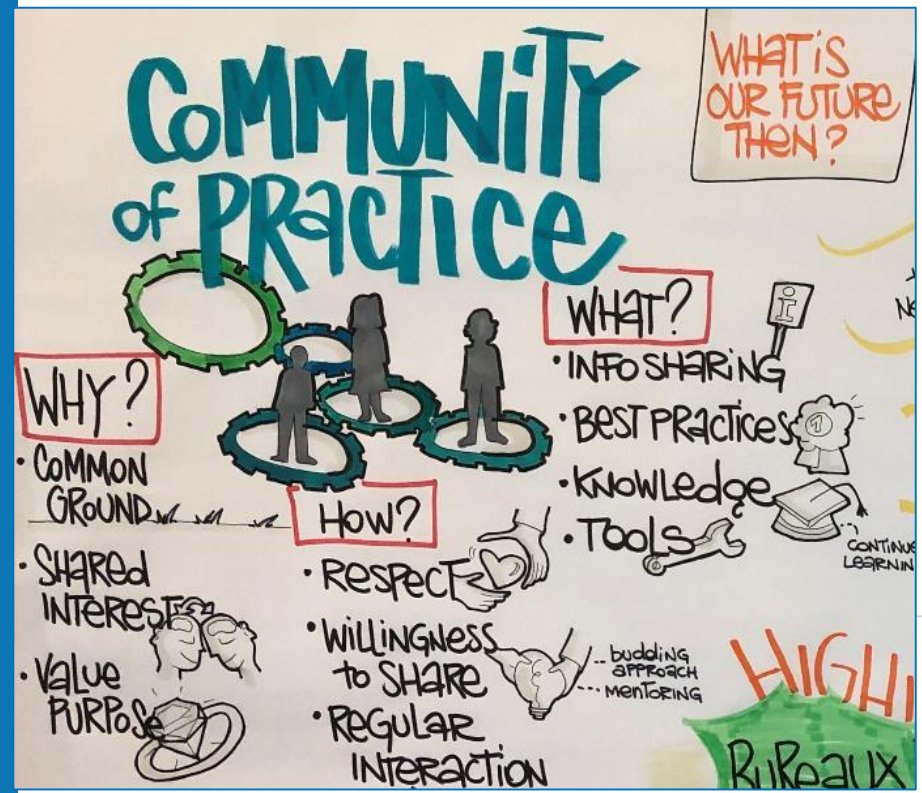 COMMUNITY
OF PRACTICE
WHAT IS
OUR FUTURE
THEN?
WHY?
• COMMON
GROUND
• SHARED
INTEREST
• VALUE
PURPOSE
HOW?
• RESPECT
• WILLINGNESS
to SHARE
• REGULAR
INTERACTION
budding
APPROACH
MENTORING
WHAT?
i
• INFO SHARING
• BEST PRACTICES
1
• KNOWLEDGE
• TOOLS
CONTINUE
LEARNIN
HIGH
BUREAUX